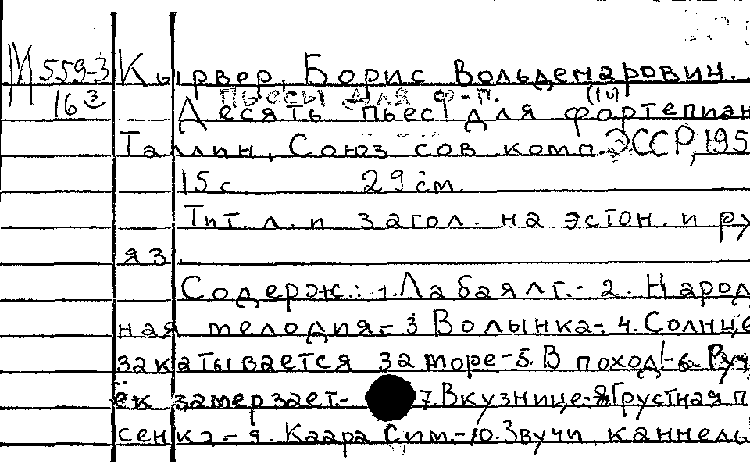 М 559-3 Кырвер, Борис Вольдемарович.
16³ пьесы для ф-п. (10)
Десять пьес для фортепиан
Таллин, Союз сов. комп. ЭССР, 195
15 с. 29 см.
Тит. л. и загол. на эстон. и ру
яз.
Содерж.: 1. Лабаялг.- 2. Народ
ная мелодия.- 3 Волынка.- 4. Солнце
закатывается за море-5. В поход!-6. Руч
ёк замерзает.- 7. В кузнице.-8 Грустная п
сенка-9. Каара Сим.-10. Звучи каннель